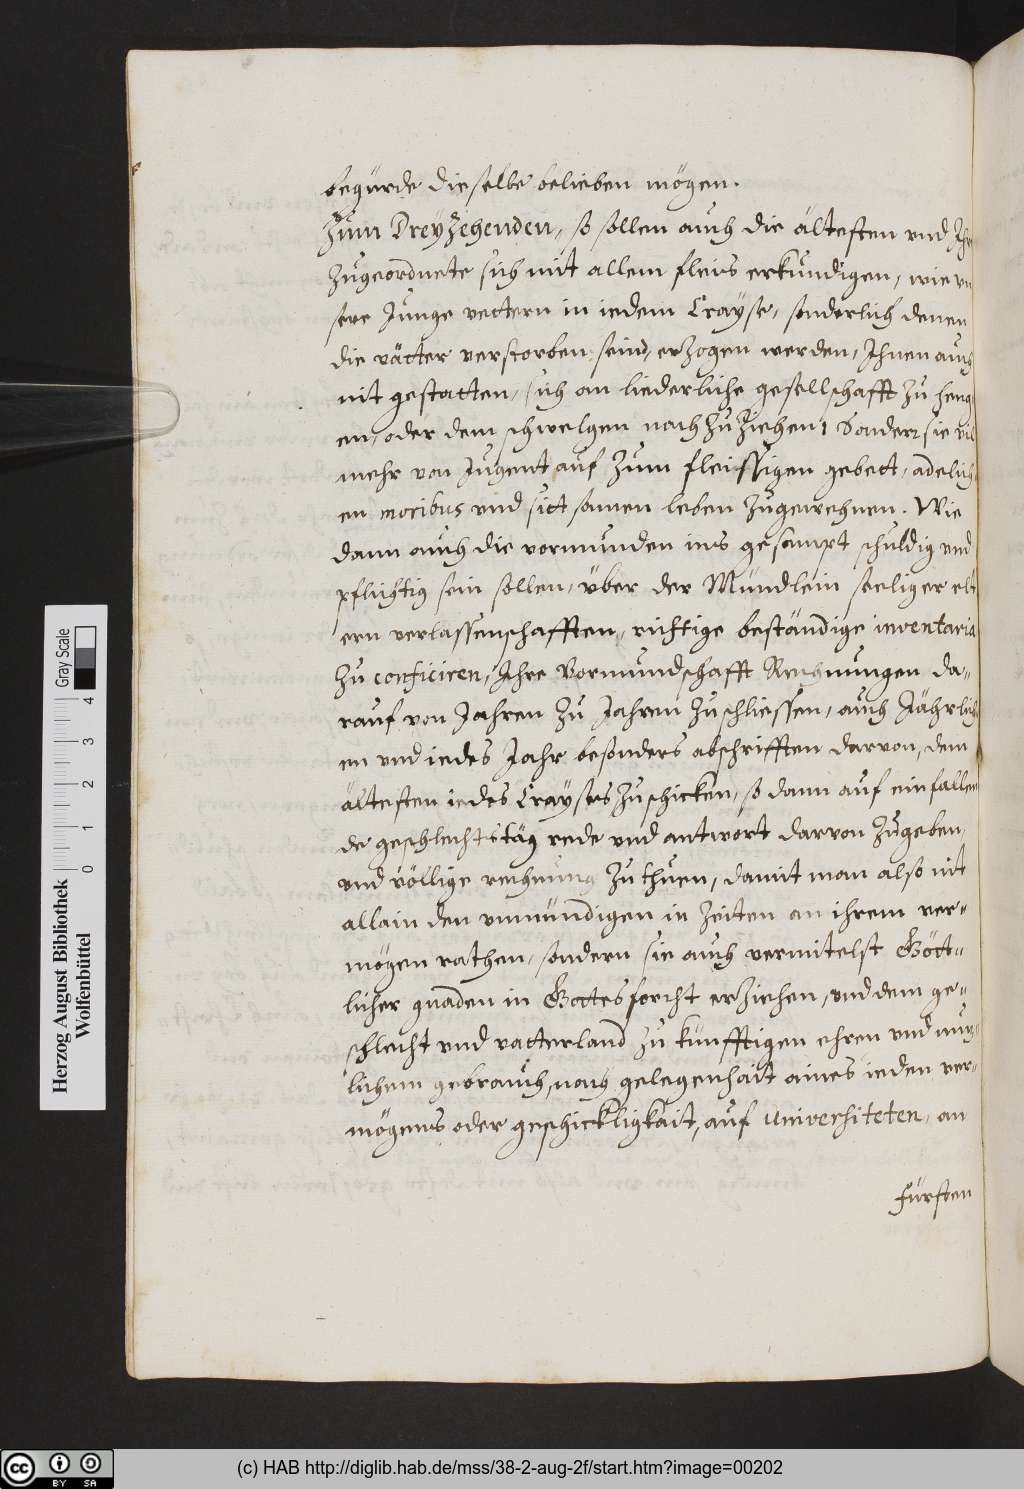 begürde dieselbe belieben mögen.
Zum Dreyzehenden, so sollen auch die ältesten vnd Ihr
zugeordnete sich mit allem fleis erkundigen, wie vn
sere Junge vettern in iedem Crayse, sonderlich denen
die vätter verstorben seind, erzogen werden, Ihnen auch
nit gestatten, sich an liederliche gesellschafft zu heng
en, oder dem schwelgen nachzuziehen, Sondern sie vil
mehr von Jugent auf zum fleissigen gebett, adelich
en moribus vnd sitt samen leben zugewehnen. Wie
dann auch die vormunden ins gesampt schuldig vnd
pflichtig sein sollen, über der Mündlein seeliger elt
ern verlassenschafften, richtige beständige inventaria
zu conficiren, Ihre Vormundschafft Rechnungen da-
rauf von Jahren zu Jahren zuschliessen, auch Jährlich
en vnd iedes Jahr besonders abschrifften darvon, dem
ältesten iedes Crayses zuschicken, so dann auf einfallen
de geschlechtstäg rede vnd antwort darvon zugeben,
vnd völlige rechnung zu thuen, damit man also nit
allain den vnmündigen in zeiten an ihrem ver-
mögen rathen, sondern sie auch vermitelst Gött-
licher gnaden in Gottesforcht erziehen, vnd dem ge-
schlecht vnd vatterland zu künfftigen ehren vnd nuz-
lichem gebrauch, nach gelegenhait aines ieden ver-
mögens oder geschickligkait, auf universiteten, an
fürsten
Herzog August Bibliothek
Wolfenbüttel
0 1 2 3 4
Gray Scale
BY SA
(c) HAB http://diglib.hab.de/mss/38-2-aug-2f/start.htm?image=00202